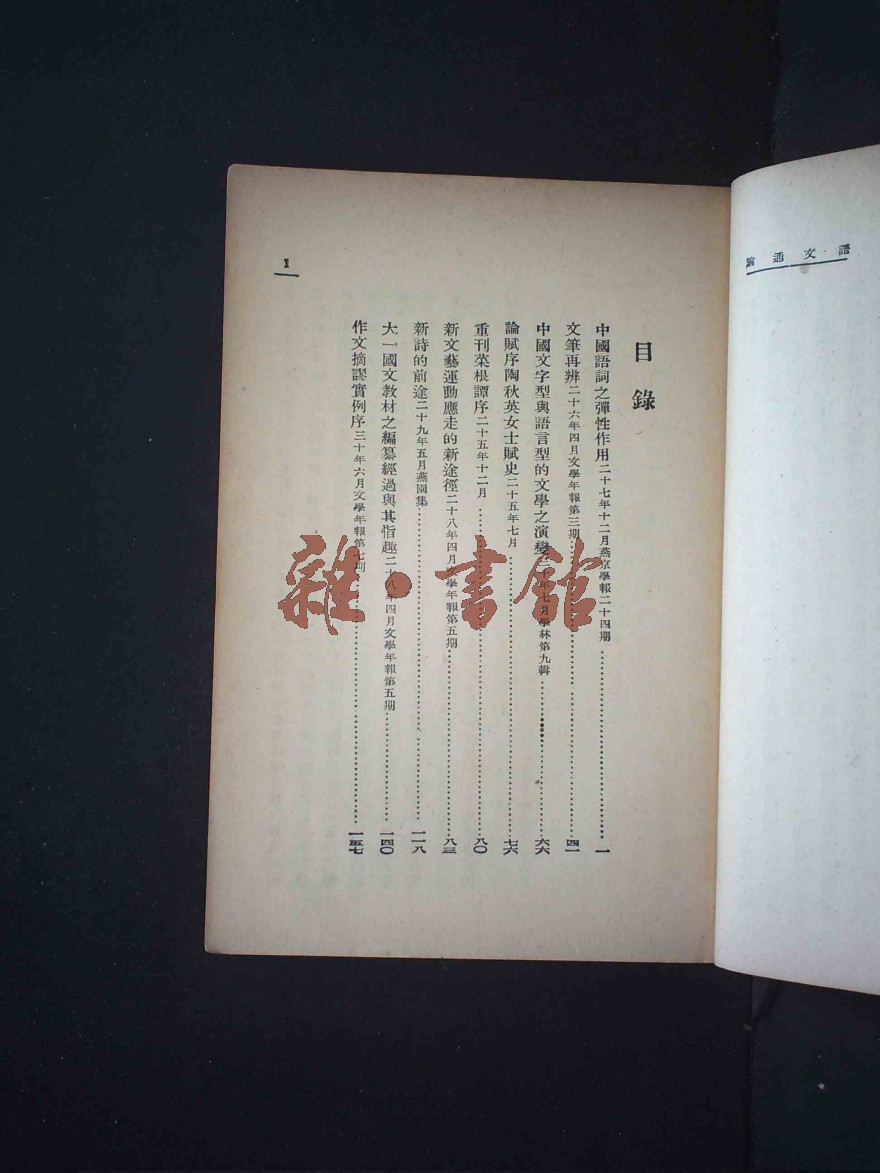 語文通論
目錄
中國語詞之彈性作用二十七年十二月燕京學報二十四期……一
文筆再辨二十六年四月文學年報第三期……四一
中國文字型與語言型的文學之演變三十年七月學林第九輯……六六
論賦序陶秋英女士賦史二十五年七月……七六
重刊菜根譚序二十五年十二月……八〇
新文藝運動應走的新途徑二十八年四月文學年報第五期……八三
新詩的前途二十九年五月燕園集……一一八
大一國文教材之編纂經過與其恉趣二十八年四月文學年報第五期……一四〇
作文摘謬實例序三十年六月文學年報第七期……一五七
1
雜·書館